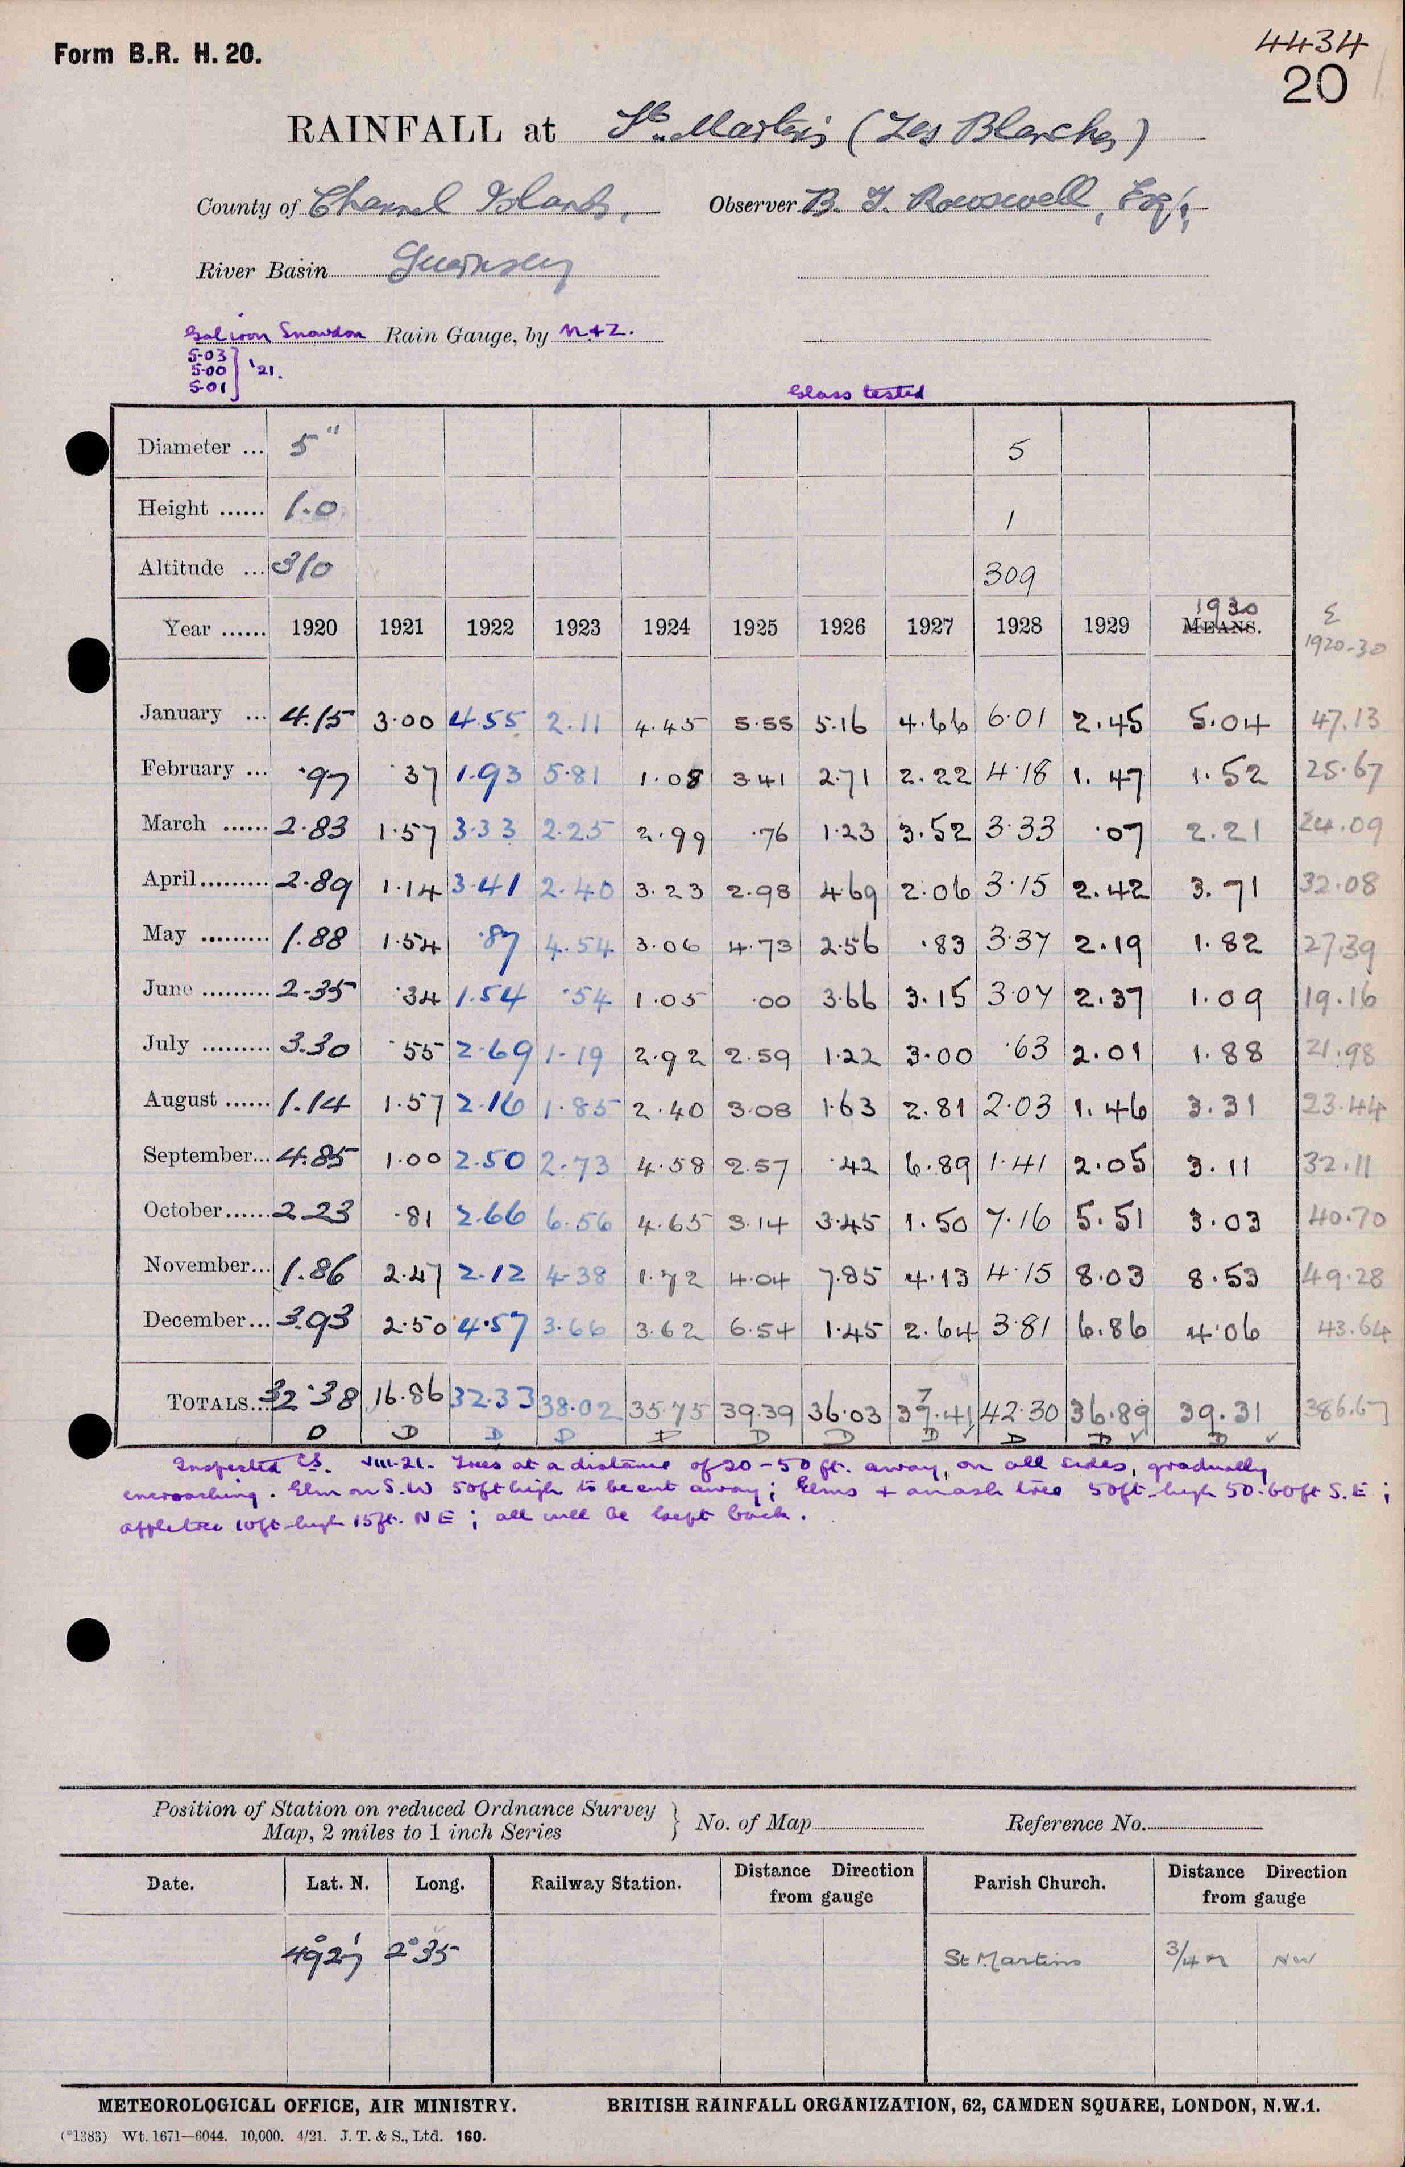 Form B.R. H. 20.
4434
20
RAINFALL at St. Martins (Les Blanches)
County of Channel Islands, Observer B. T. Rowswell, Esq.,
River Basin Guernsey
Gal iron Snowdon Rain Gauge, by N+Z.
5.03
5.00 '21.
5.01
Glass tested
Diameter ... 5" 5
Height ...... 1.0 1
Altitude ... 310 309
Year ...... 1920 1921 1922 1923 1924 1925 1926 1927 1928 1929 1930 MEANS. Σ 1920-30
January ... 4.15 3.00 4.55 2.11 4.45 5.55 5.16 4.66 6.01 2.45 5.04 47.13
February ... .97 .37 1.93 5.81 1.08 3.41 2.71 2.22 4.18 1.47 1.52 25.67
March ...... 2.83 1.57 3.33 2.25 2.99 .76 1.23 3.52 3.33 .07 2.21 24.09
April......... 2.89 1.14 3.41 2.40 3.23 2.98 4.69 2.06 3.15 2.42 3.71 32.08
May ......... 1.88 1.54 .87 4.54 3.06 4.73 2.56 .83 3.37 2.19 1.82 27.39
June ......... 2.35 .34 1.54 .54 1.05 .00 3.66 3.15 3.07 2.37 1.09 19.16
July ......... 3.30 .55 2.69 1.19 2.92 2.59 1.22 3.00 .63 2.01 1.88 21.98
August ...... 1.14 1.57 2.16 1.85 2.40 3.08 1.63 2.81 2.03 1.46 3.31 23.44
September... 4.85 1.00 2.50 2.73 4.58 2.57 .42 6.89 1.41 2.05 3.11 32.11
October...... 2.23 .81 2.66 6.56 4.65 3.14 3.45 1.50 7.16 5.51 3.03 40.70
November... 1.86 2.47 2.12 4.38 1.72 4.04 7.85 4.13 4.15 8.03 8.53 49.28
December... 3.93 2.50 4.57 3.66 3.62 6.54 1.45 2.64 3.81 6.86 4.06 43.64
TOTALS... 32.38 16.86 32.33 38.02 35.75 39.39 36.03 37.41 42.30 36.89 39.31 386.67
D D D D D D D D ✓ D D ✓ D ✓
Inspected C.S. VIII-21. Trees at a distance of 20-50 ft. away, on all sides, gradually
encroaching. Elm on S.W 50ft high to be cut away; Elms + an ash tree 50ft high 50-60ft S.E;
appletree 10ft high 15ft. NE; all will be kept back.
Position of Station on reduced Ordnance Survey
Map, 2 miles to 1 inch Series } No. of Map Reference No.
Date. Lat. N. Long. Railway Station. Distance Direction from gauge Parish Church. Distance Direction from gauge
49°27' 2°35 St Martins 3/4 m NW
METEOROLOGICAL OFFICE, AIR MINISTRY. BRITISH RAINFALL ORGANIZATION, 62, CAMDEN SQUARE, LONDON, N.W.1.
(*1383) Wt. 1671—6044. 10,000. 4/21. J. T. & S., Ltd. 160.